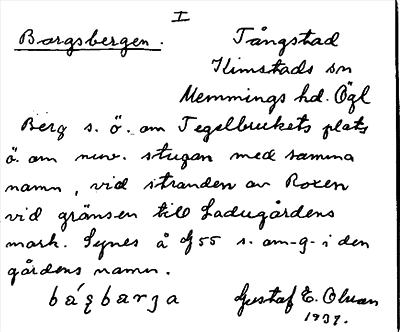 I
Borgsbergen. Tångstad
Kimstads sn
Memmings hd. Ögl
Berg s. ö. om Tegelbrukets plats
ö. om nuv. stugan med samma
namn, vid stranden av Roxen
vid gränsen till Ladugårdens
mark. Synes å G 55 s. om -g- i den
gårdens namn.
Gustaf E. Olsson
1937.